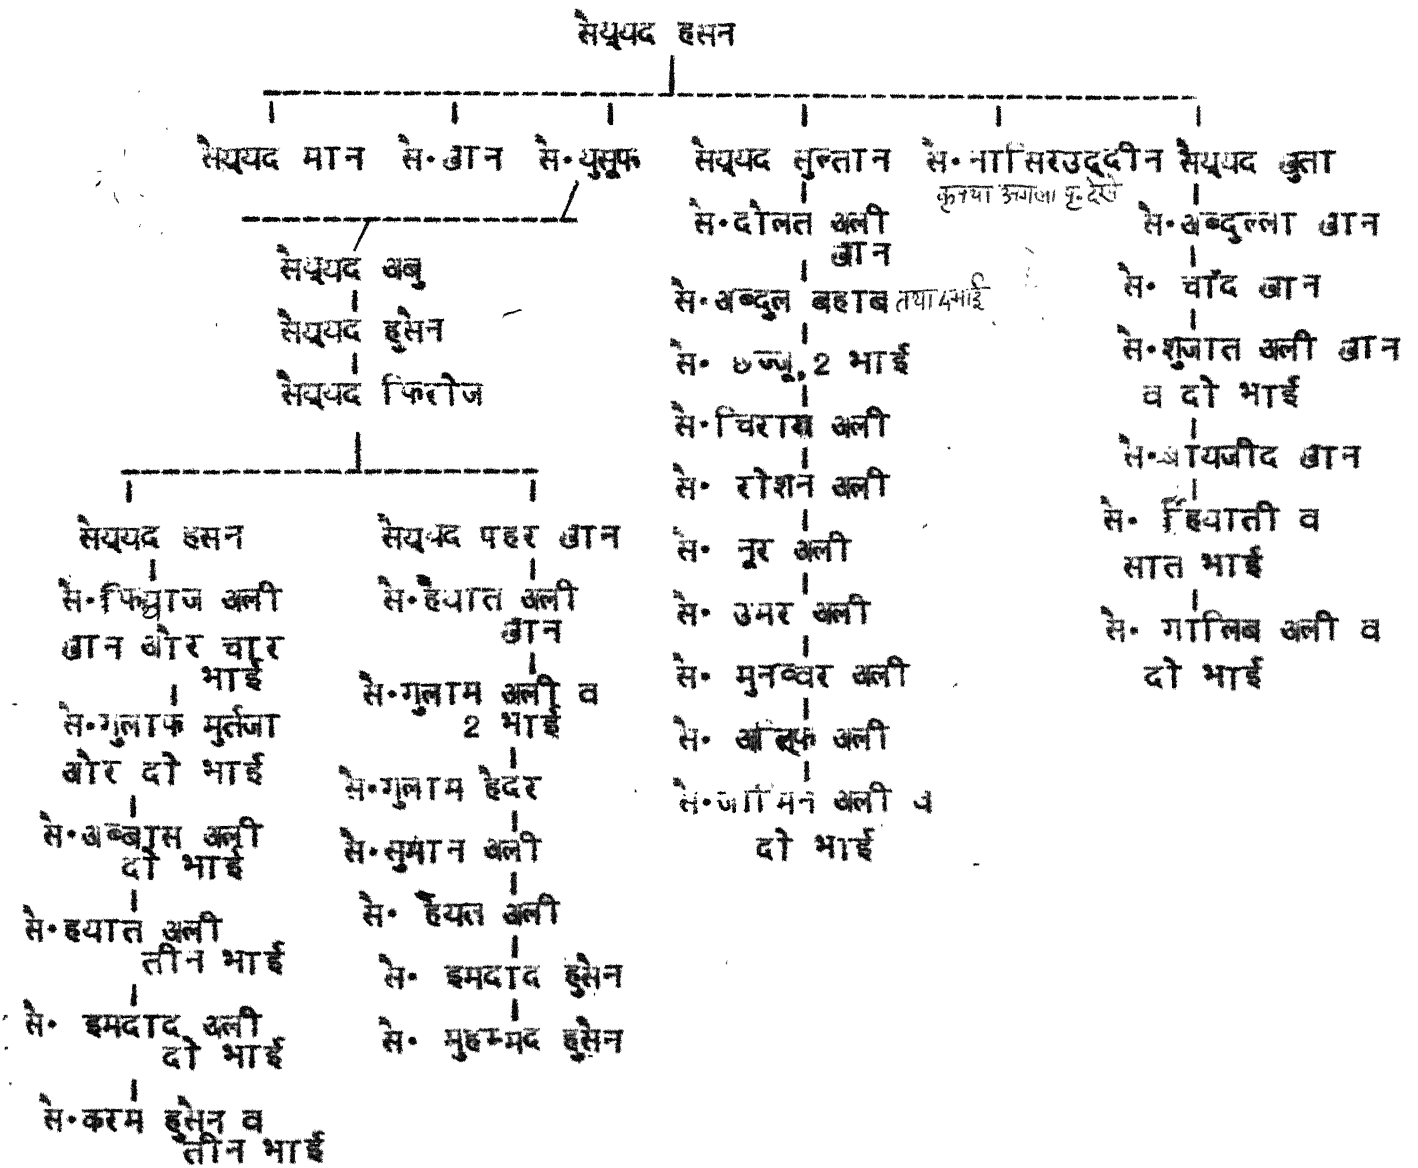 सैय्यद हसन
सैय्यद मान सै॰खान सै॰युसूफ सैय्यद सुल्तान सै॰नासिरउद्दीन सैय्यद खुता
कृपया अगला पृ॰देखें
सैय्यद अबु
सैय्यद हुसैन
सैय्यद फिरोज
सैय्यद हसन
सै॰फिय्याज अली
खान और चार
भाई
सै॰गुलाफ मुर्तजा
और दो भाई
सै॰अब्बास अली
दो भाई
सै॰हयात अली
तीन भाई
सै॰ इमदाद अली
दो भाई
सै॰करम हुसैन व
तीन भाई
सैय्यद पहर खान
सै॰हैयात अली
खान
सै॰गुलाम अली व
2 भाई
सै॰गुलाम हैदर
सै॰सुमान अली
सै॰ हैयत अली
सै॰ इमदाद हुसैन
सै॰ मुहम्मद हुसैन
सै॰दोलत अली
खान
सै॰अब्दुल बहाब तथा 4 भाई
सै॰ छज्जू, 2 भाई
सै॰चिराग अली
सै॰ रोशन अली
सै॰ नूर अली
सै॰ उमर अली
सै॰ मुनव्वर अली
सै॰ अली
सै॰जामिन अली व
दो भाई
सै॰अब्दुल्ला खान
सै॰ चाँद खान
सै॰शुजात अली खान
व दो भाई
सै॰बायजीद खान
सै॰ हियाती व
सात भाई
सै॰ गालिब अली व
दो भाई